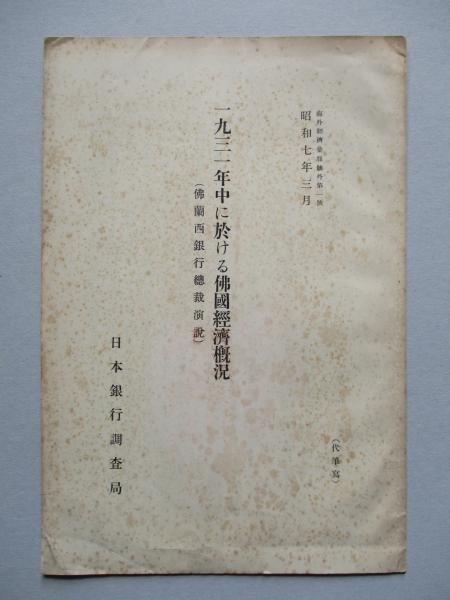 海外經濟彙報號外第一號
昭和七年三月
(代筆寫)
一九三一年中に於ける佛國經濟槪況
(佛蘭西銀行總裁演說)
日本銀行調査局